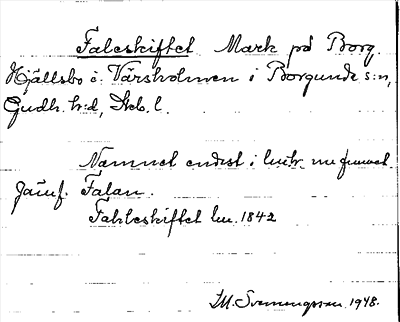 Faleskiftet Mark på Borg.
Hjällsbo å Värsholmen i Borgunda s:n,
Gudh. h:d, Skb. l.
Namnet endast i
Jämf. Falan.
Fahleskiftet lm. 1842
M. Svenungsson 1948.